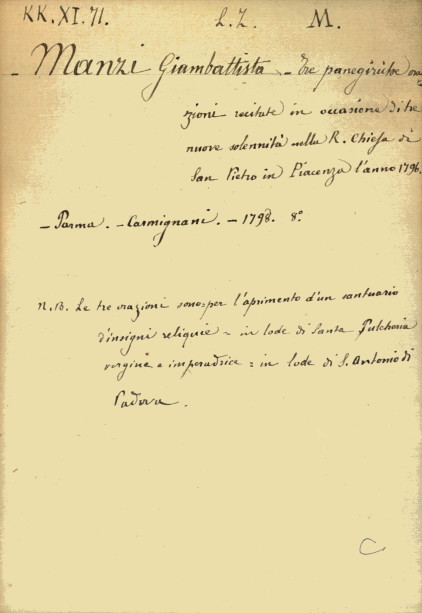 KK.XI.71. L.Z. M.
- Manzi Giambattista - Tre panegiriche ora-
zioni recitate in occasione di tre
nuove solennità nella R. Chiesa di
San Pietro in Piacenza l'anno 1796.
- Parma. - Carmignani. - 1798. 8.º
N.B. Le tre orazioni sono = per l'aprimento d'un santuario
d'insigni reliquie = in lode di Santa Pulcheria
vergine e imperadrice = in lode di S. Antonio di
Padova.
C